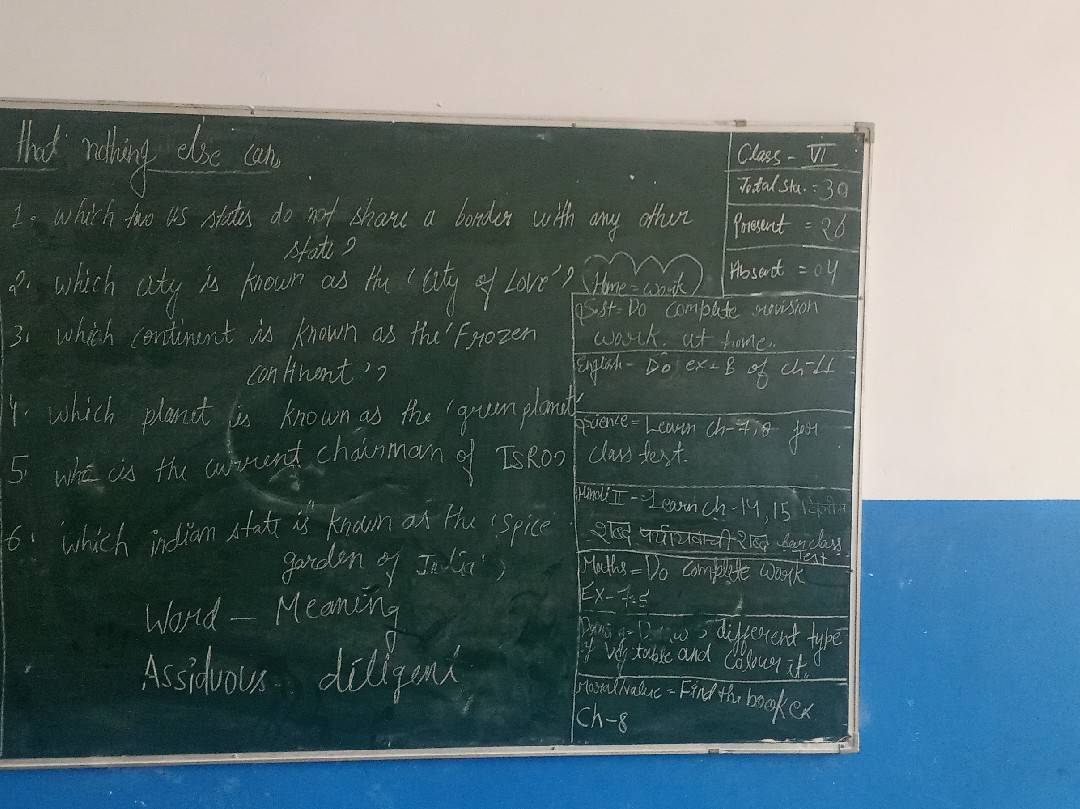 that nothing else can
1. which two us states do not share a border with any other
state?
2. which city is known as the 'City of Love'?
3. which continent is known as the 'Frozen
continent'?
4. which planet is known as the 'green planet'
5. who is the current chairman of ISRO?
6. which indian state is known as the 'spice
garden of India'?
Word - Meaning
Assiduous - diligent
Class - VI
Total stu. = 30
Present = 26
Absent = 04
Home = work
S.st = Do complete revision
work. at home.
English - Do ex - B of ch - 11
Science = Learn ch - 7, 8 for
class test.
Hindi II - Learn ch - 14, 15 विलोम
शब्द पर्यायवाची शब्द for class
Test
Maths = Do complete work
Ex - 7.5
Draw 5 different type
of vegtable and colour it.
Moral value = Find the book ex
Ch - 8